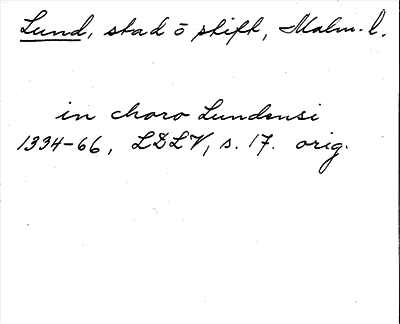 Lund, stad ō stift, Malm. l.
in choro Lundensi
1334-66, LDLV, s. 17. orig.